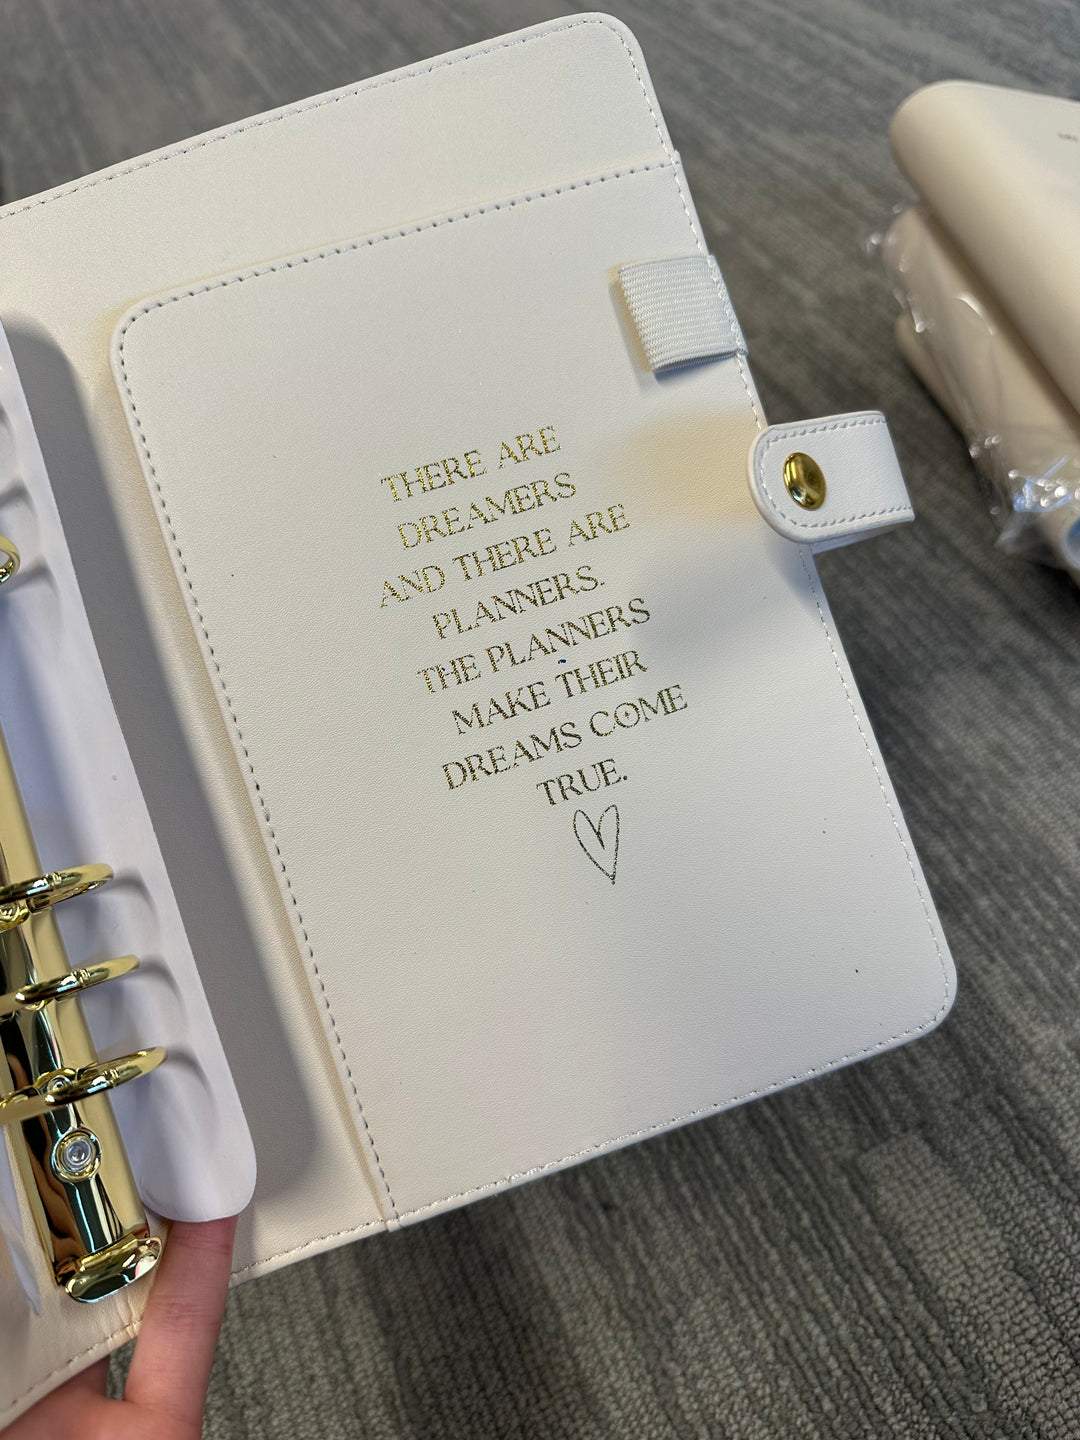 THERE ARE
DREAMERS
AND THERE ARE
PLANNERS.
THE PLANNERS
MAKE THEIR
DREAMS COME
TRUE.